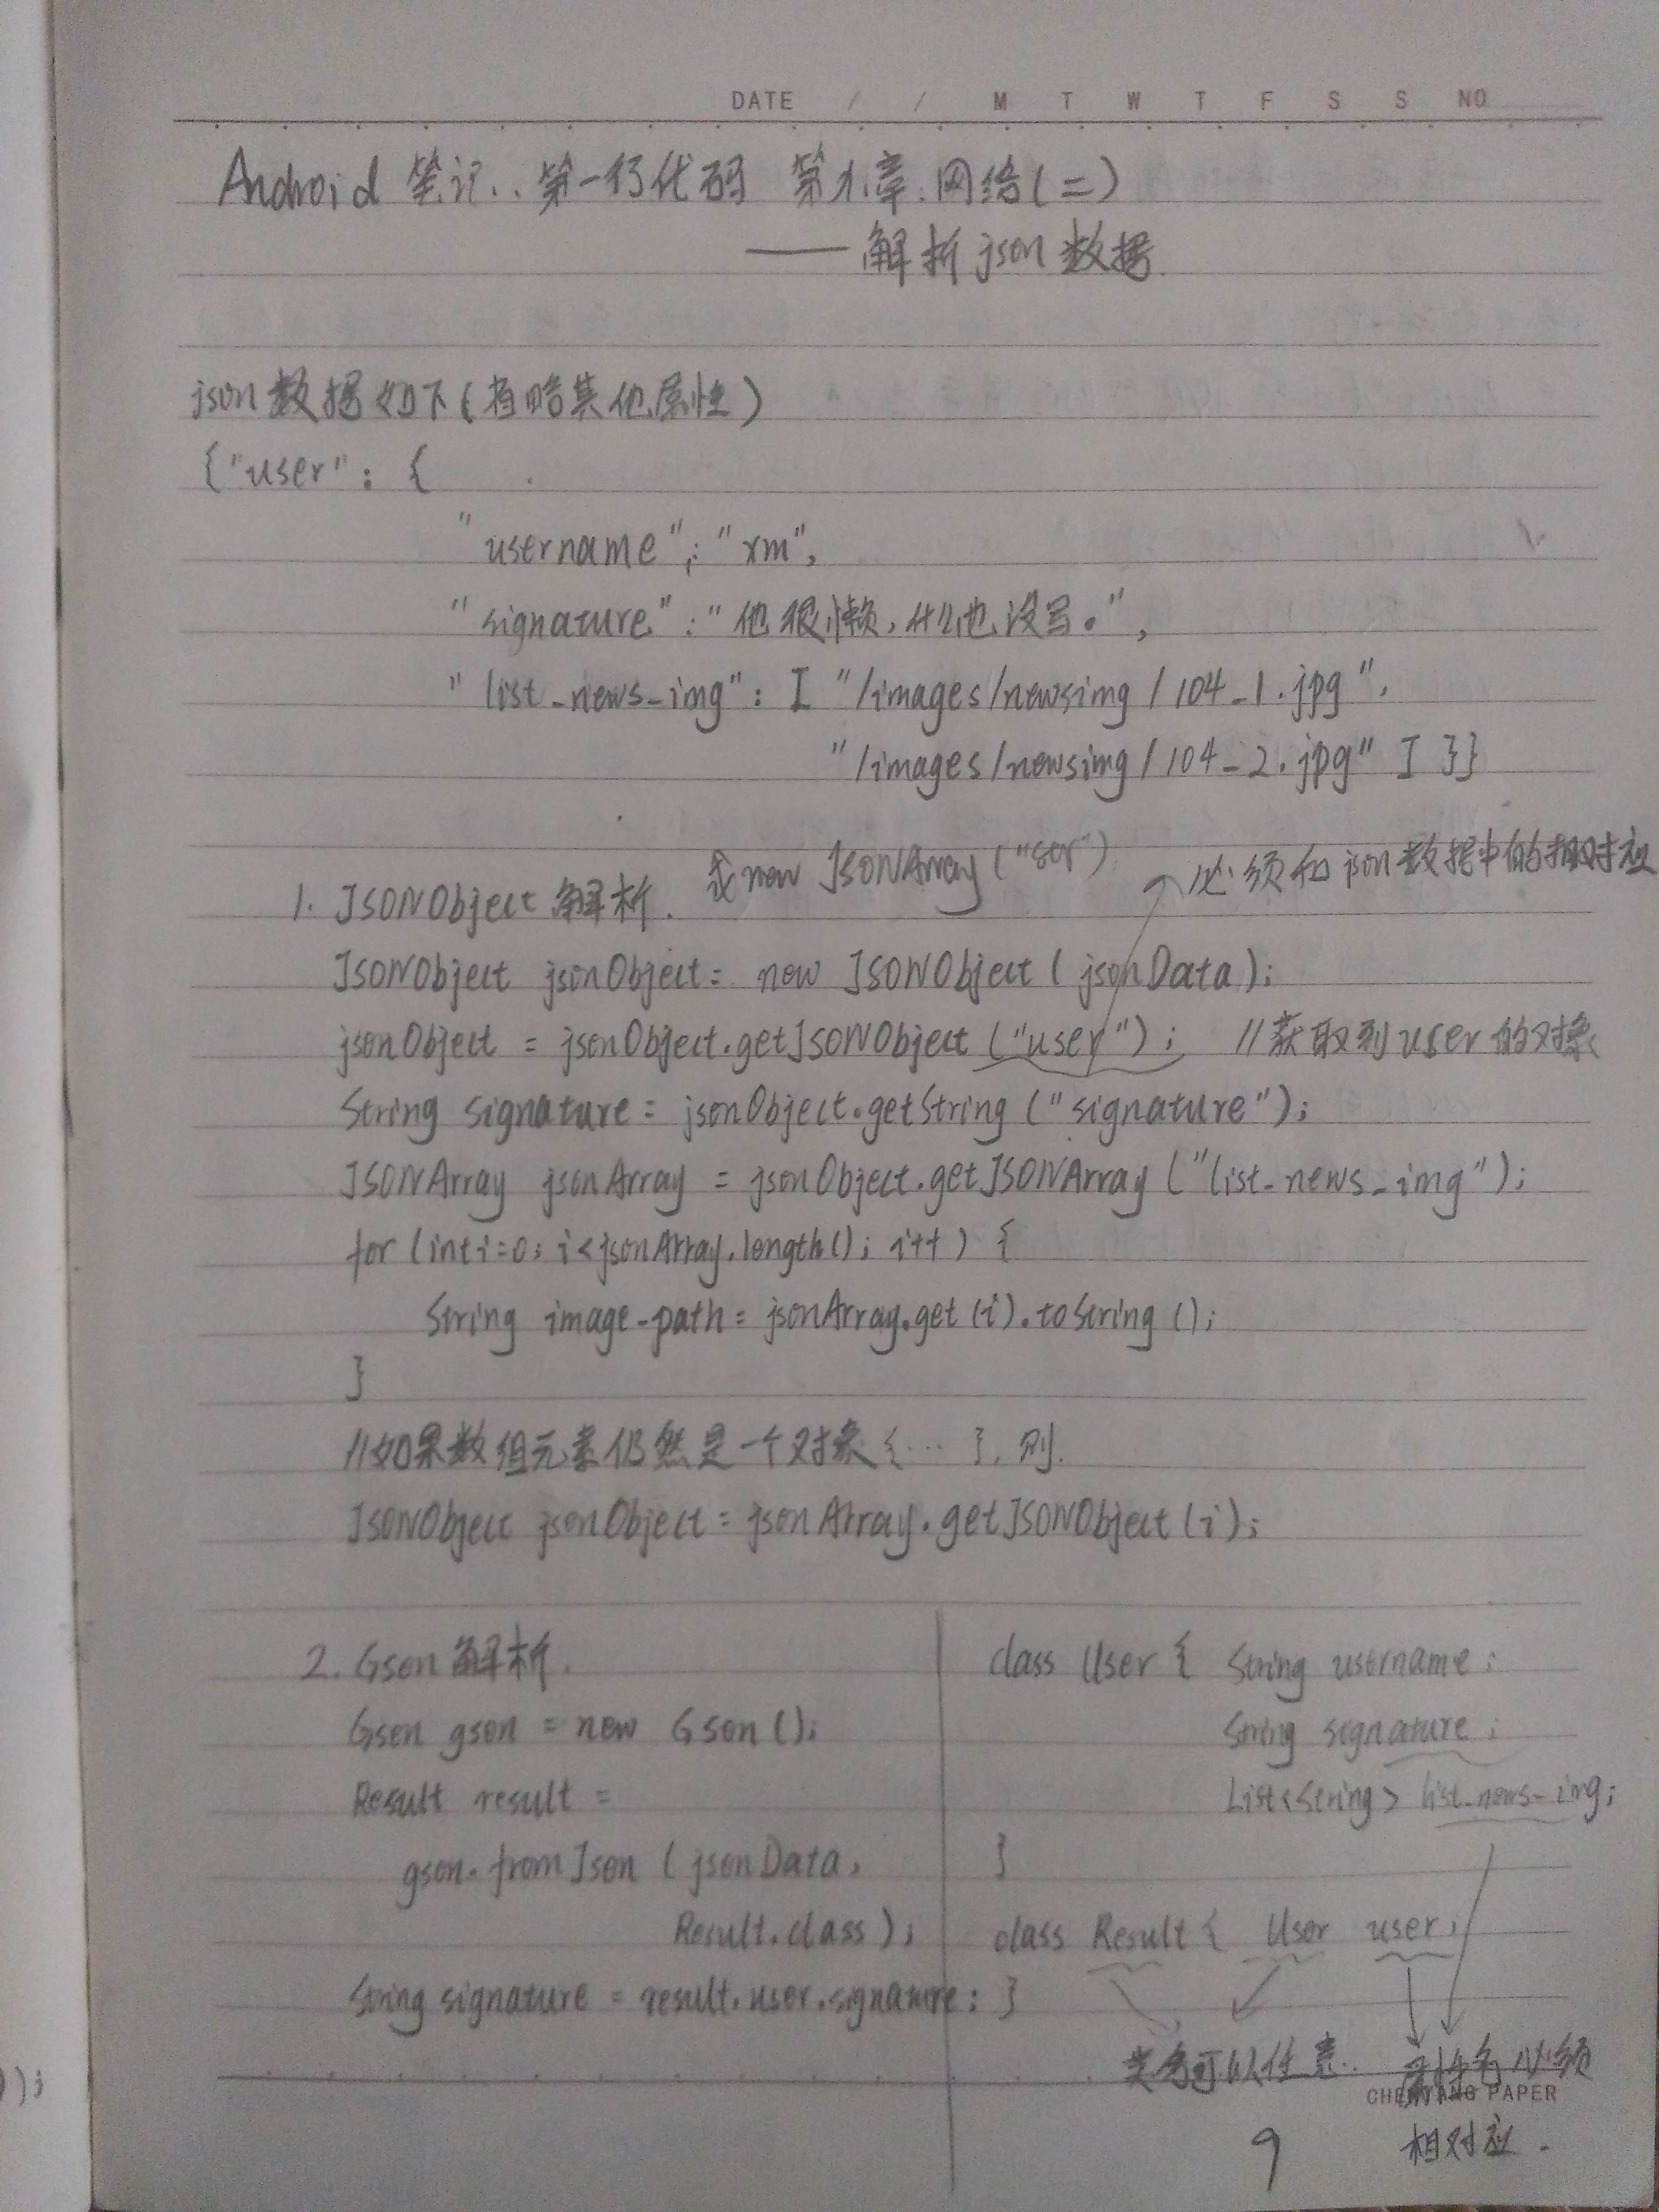 DATE / / M T W T F S S NO
Android 笔记..第一行代码 第九章.网络(二)
——解析json数据
json数据如下(省略其他属性)
{"user": {
"username": "xm",
"signature": "他很懒,什么也没写。",
"list_news_img": ["/images/newsimg/104_1.jpg",
"/images/newsimg/104_2.jpg"]}}
或new JSONArray("str")
必须和json数据中的相对应
1. JSONObject 解析.
JSONObject jsonObject = new JSONObject(jsonData);
jsonObject = jsonObject.getJSONObject("user"); //获取到user的对象
String signature = jsonObject.getString("signature");
JSONArray jsonArray = jsonObject.getJSONArray("list_news_img");
for (int i=0; i<jsonArray.length(); i++) {
String image-path = jsonArray.get(i).toString();
}
//如果数组元素仍然是一个对象{…}, 则.
JSONObject jsonObject = jsonArray.getJSONObject(i);
2. Gson 解析.
Gson gson = new Gson();
Result result =
gson.fromJson(jsonData,
Result.class);
String signature = result.user.signature;
class User { String username;
String signature;
List<String> list_news_img;
}
class Result { User user;
}
类名可以任意.
属性名必须
相对应.
CHENYANG PAPER
9
);